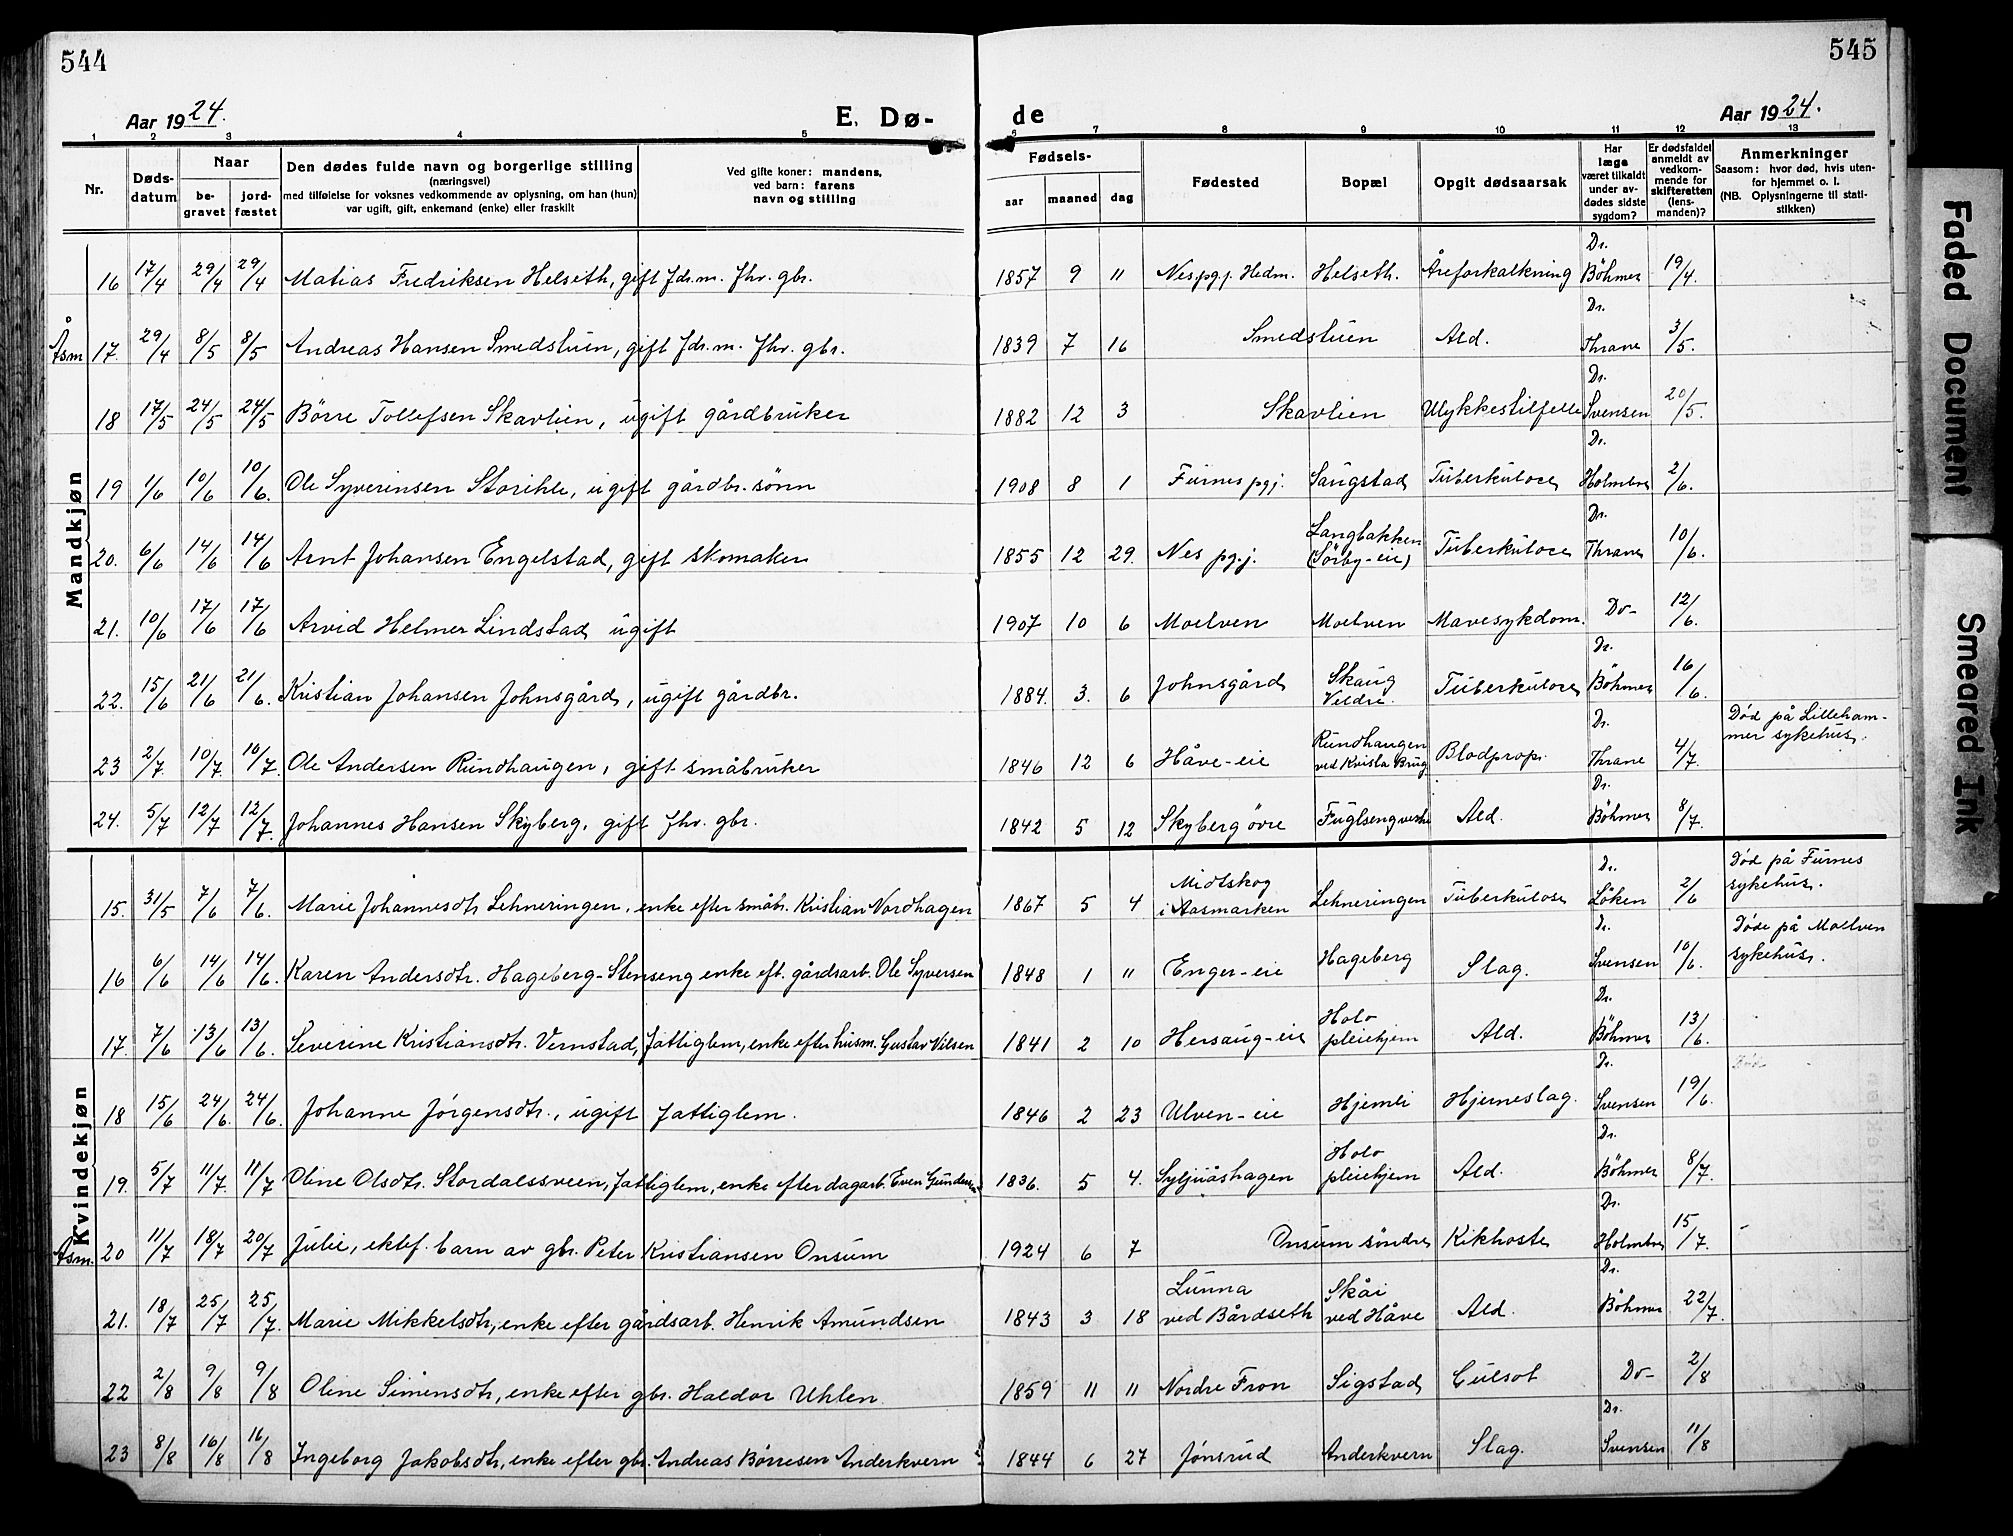 544
545
Aar 1924.
E. Dø-
de
Aar 1924.
1 2 3 4 5 6 7 8 9 10 11 12 13
Nr.
Døds-
datum
Naar
be-
gravet
jord-
fæstet
Den dødes fulde navn og borgerlige stilling
(næringsvei)
med tilføielse for voksnes vedkommende av oplysning, om han (hun)
var ugift, gift, enkemand (enke) eller fraskilt
Ved gifte koner: mandens,
ved barn: farens
navn og stilling
Fødsels-
aar maaned dag
Fødested
Bopæl
Opgit dødsaarsak
Har
læge
været tilkaldt
under av-
dødes sidste
sygdom?
Er dødsfaldet
anmeldt av
vedkom-
mende for
skifteretten
(lens-
manden)?
Anmerkninger
Saasom: hvor død, hvis uten-
for hjemmet o. l.
(NB. Oplysningerne til stati-
stikken)
Mandkjøn
16 17/4 29/4 29/4 Matias Fredriksen Helseth, gift fdr.m. fhv. gbr. 1857 9 11 Nes pgj. Hedm. Helseth. Åreforkalkning Dr. Böhmer 19/4.
Åsm 17. 29/4 8/5 8/5 Andreas Hansen Smedstuen, gift fdr.m. fhv. gbr. 1839 7 16 Smedstuen Ald. Dr. Thrane 3/5.
18 17/5 24/5 24/5 Börre Tollefsen Skavlien, ugift gårdbruker 1882 12 3 Skavlien Ulykkestilfelle Dr. Svensen 20/5.
19 1/6 10/6 10/6. Ole Syverinsen Storihle, ugift gårdbr. sönn 1908 8 1 Furnes pgj. Saugstad Tuberkulose Dr. Holmboe 2/6.
20. 6/6 14/6 14/6 Arnt Johansen Engelstad, gift skomaker 1855 12 29. Nes pgj. Langbakken (Sörby-eie) Tuberkulose Dr. Thrane 10/6.
21. 10/6 17/6 17/6 Arvid Helmer Lindstad ugift 1907 10 6 Moelven Moelven Mavesykdom. Do- 12/6.
22. 15/6 21/6 21/6. Kristian Johansen Johnsgård, ugift gårdbr. 1884. 3. 6 Johnsgård Skaug Veldre. Tuberkulose Dr. Böhmer 16/6.
23 2/7. 10/7. 10/7. Ole Andersen Rundhaugen, gift småbruker 1846 12 6 Håve-eie Rundhaugen ved Kvista Brug Blodprop. Dr. Thrane 4/7. Död på Lilleham-
mer sykehus.
24. 5/7 12/7 12/7. Johannes Hansen Skyberg, gift fhv. gbr. 1842 5 12 Skyberg övre Fuglseng vestre Ald. Dr. Böhmer 8/7.
Kvindekjøn
15. 31/5 7/6 7/6. Marie Johannesdtr. Lehneringen, enke efter småbr. Kristian Nordhagen 1867 5 4 Midtskog i Aasmarken Lehneringen Tuberkulose Dr. Löken 2/6 Död på Furnes
sykehus.
16 6/6 14/6 14/6. Karen Andersdtr. Hageberg-Stenseng enke eft. gårdsarb. Ole Syversen 1848 1 11 Enger-eie Hageberg Slag. Dr. Svensen 10/6. Döde på Moelven
sykehus.
17. 7/6 13/6 13/6. Severine Kristiansdtr. Vernstad, fattiglem, enke efter husm. Gustav Nilsen 1841 2 10 Hersaug-eie Holo pleiehjem Ald. Dr. Böhmer 13/6.
18 15/6 24/6. 24/6. Johanne Jørgensdtr., ugift fattiglem. 1846 2 23 Ulven-eie Hjemli Hjerneslag. Dr. Svensen 19/6. Död
19. 5/7 11/7. 11/7 Oline Olsdtr. Stordalssveen, fattiglem, enke efter dagarb. Even Gundersen 1836. 5 4. Syljuåshagen Holo pleiehjem Ald. Dr. Böhmer 8/7.
Åsm. 20 11/7 18/7 20/7 Julie, ektef. barn av gbr. Peter Kristiansen Onsum 1924 6 7 Onsum söndre Kikhoste Dr. Holmboe 15/7.
21. 18/7 25/7 25/7. Marie Mikkelsdtr, enke efter gårdsarb. Henrik Amundsen 1843 3 18 Lunna ved Bårdseth Skåi ved Håve Ald. Dr. Böhmer 22/7.
22 2/8 9/8 9/8 Oline Simensdtr, enke efter gbr. Haldor Uhlen 1859 11 11 Nordre Fron Sigstad Gulsot Do- 2/8
23 8/8 16/8 16/8 Ingeborg Jakobsdtr, enke efter gbr. Andreas Börresen Anderkvern 1844 6 27 Jönsrud Anderkvern Slag. Dr. Svensen 11/8
Faded Document
Smeared Ink